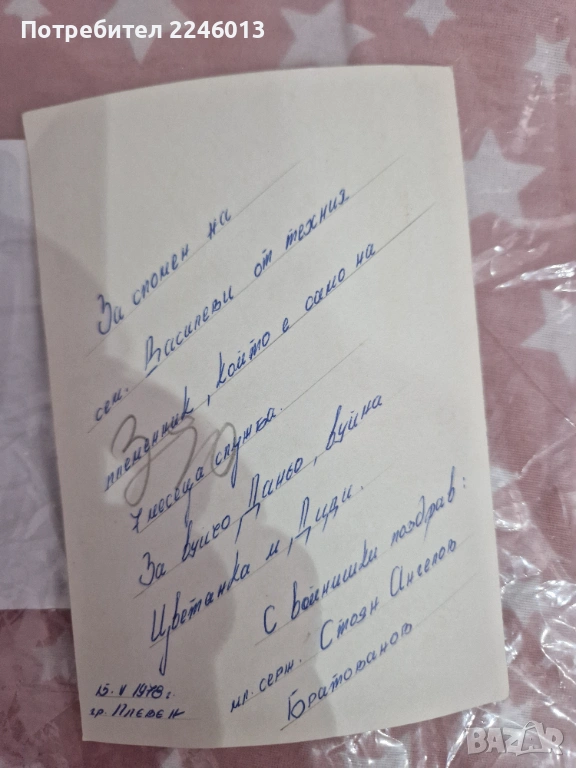 Потребител 2246013
За спомен на
сем. Василеви от техния
племенник, който е само на
7 месеца служба.
За вуйчо Даньо, вуйна
Цветанка и Диди.
С войнишки поздрав:
мл. серж. Стоян Ангелов
Братованов
15. V 1978 г.
гр. Плевен
3-70
BAZAR